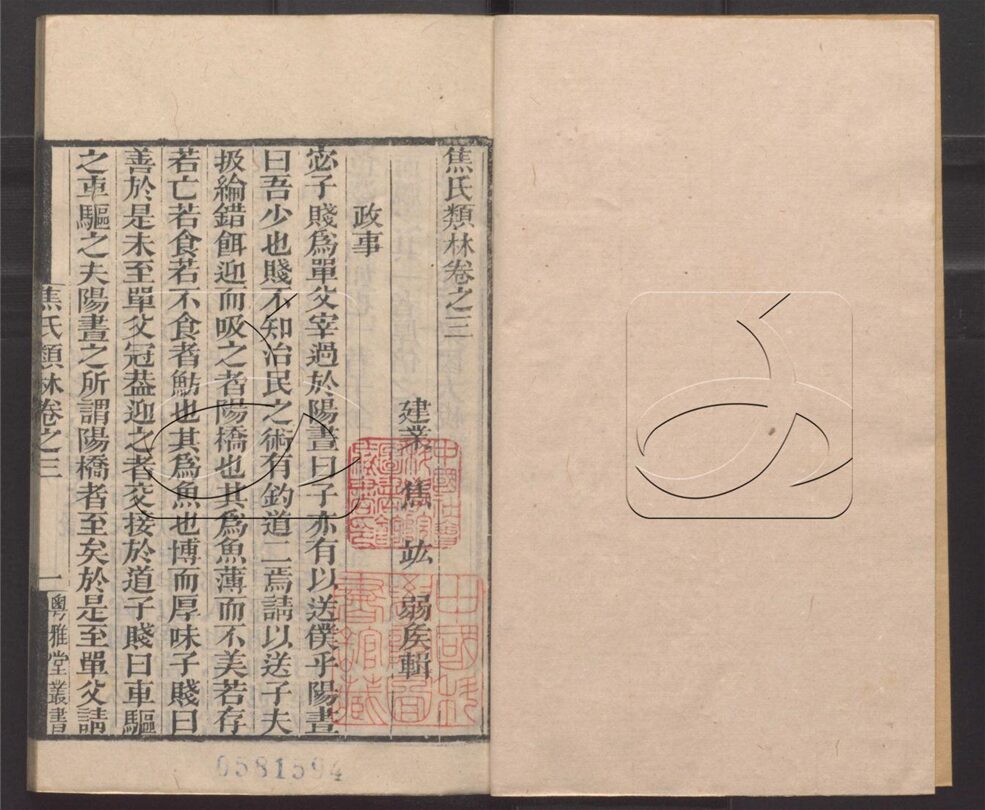 焦氏類林卷之三
建業 焦 竑 弱矦輯
政事
宓子賤爲單父宰過於陽晝曰子亦有以送僕乎陽晝
曰吾少也賤不知治民之術有釣道二焉請以送子夫
扱綸錯餌迎而吸之者陽橋也其爲魚薄而不美若存
若亡若食若不食者魴也其爲魚也博而厚味子賤曰
善於是未至單父冠葢迎之者交接於道子賤曰車驅
之車驅之夫陽晝之所謂陽橋者至矣於是至單父請
焦氏類林卷之三 一 粵雅堂叢書
0581594